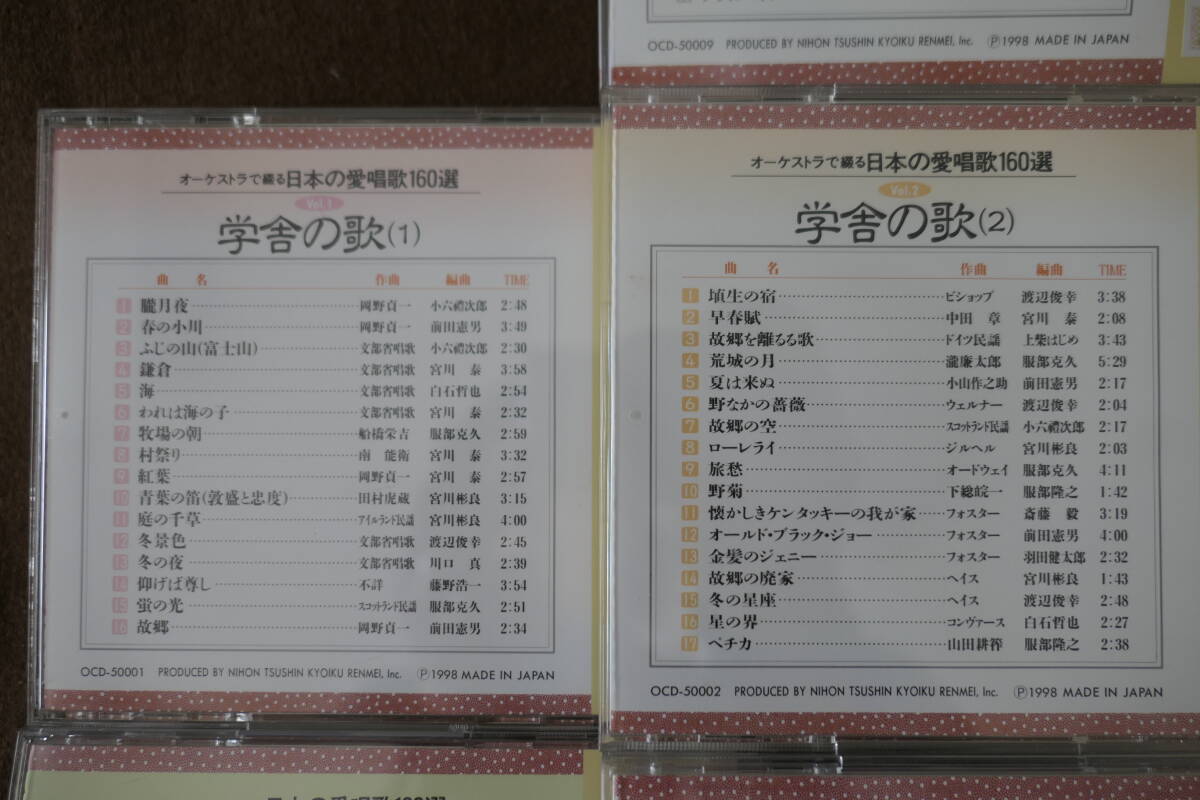 OCD-50009 PRODUCED BY NIHON TSUSHIN KYOIKU RENMEI, Inc. Ⓟ1998 MADE IN JAPAN
オーケストラで綴る日本の愛唱歌160選
Vol.1
学舎の歌(1)
曲 名 作曲 編曲 TIME
1 朧月夜 岡野貞一 小六禮次郎 2:48
2 春の小川 岡野貞一 前田憲男 3:49
3 ふじの山(富士山) 文部省唱歌 小六禮次郎 2:30
4 鎌倉 文部省唱歌 宮川 泰 3:58
5 海 文部省唱歌 白石哲也 2:54
6 われは海の子 文部省唱歌 宮川 泰 2:32
7 牧場の朝 船橋栄吉 服部克久 2:59
8 村祭り 南 能衛 宮川 泰 3:32
9 紅葉 岡野貞一 宮川 泰 2:57
10 青葉の笛(敦盛と忠度) 田村虎蔵 宮川彬良 3:15
11 庭の千草 アイルランド民謡 宮川彬良 4:00
12 冬景色 文部省唱歌 渡辺俊幸 2:45
13 冬の夜 文部省唱歌 川口 真 2:39
14 仰げば尊し 不詳 藤野浩一 3:54
15 蛍の光 スコットランド民謡 服部克久 2:51
16 故郷 岡野貞一 前田憲男 2:34
OCD-50001 PRODUCED BY NIHON TSUSHIN KYOIKU RENMEI, Inc. Ⓟ1998 MADE IN JAPAN
オーケストラで綴る日本の愛唱歌160選
Vol.2
学舎の歌(2)
曲 名 作曲 編曲 TIME
1 埴生の宿 ビショップ 渡辺俊幸 3:38
2 早春賦 中田 章 宮川 泰 2:08
3 故郷を離るる歌 ドイツ民謡 上柴はじめ 3:43
4 荒城の月 瀧廉太郎 服部克久 5:29
5 夏は来ぬ 小山作之助 前田憲男 2:17
6 野なかの薔薇 ウェルナー 渡辺俊幸 2:04
7 故郷の空 スコットランド民謡 小六禮次郎 2:17
8 ローレライ ジルヘル 宮川彬良 2:03
9 旅愁 オードウェイ 服部克久 4:11
10 野菊 下総皖一 服部隆之 1:42
11 懐かしきケンタッキーの我が家 フォスター 斎藤 毅 3:19
12 オールド・ブラック・ジョー フォスター 前田憲男 4:00
13 金髪のジェニー フォスター 羽田健太郎 2:32
14 故郷の廃家 ヘイス 宮川彬良 1:43
15 冬の星座 ヘイス 渡辺俊幸 2:48
16 星の界 コンヴァース 白石哲也 2:27
17 ペチカ 山田耕筰 服部隆之 2:38
OCD-50002 PRODUCED BY NIHON TSUSHIN KYOIKU RENMEI, Inc. Ⓟ1998 MADE IN JAPAN
日本の愛唱歌160選